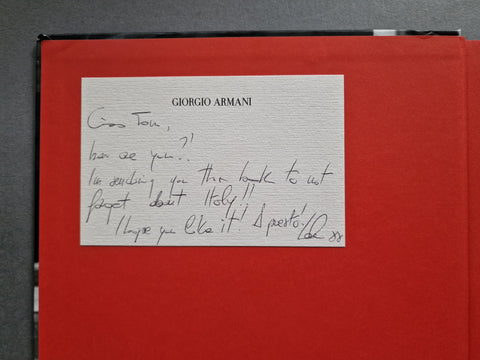 GIORGIO ARMANI
Ciao Tom,
how are you?!
I'm sending you this book to not
forget about Italy!!
I hope you like it! A presto!